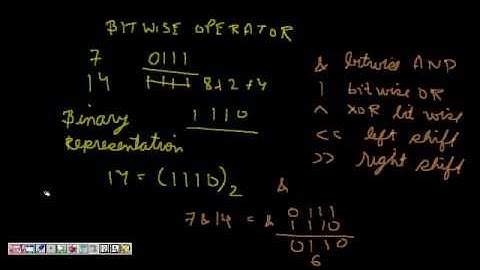 BITWISE OPERATOR
7 0111
14 1111 8+2+4
Binary 1110
Representation
14 = (1110)2
& bitwise AND
| bitwise OR
^ XOR bit wise
<< left shift
>> right shift
&
7&14 = & 0111
1110
0110
6